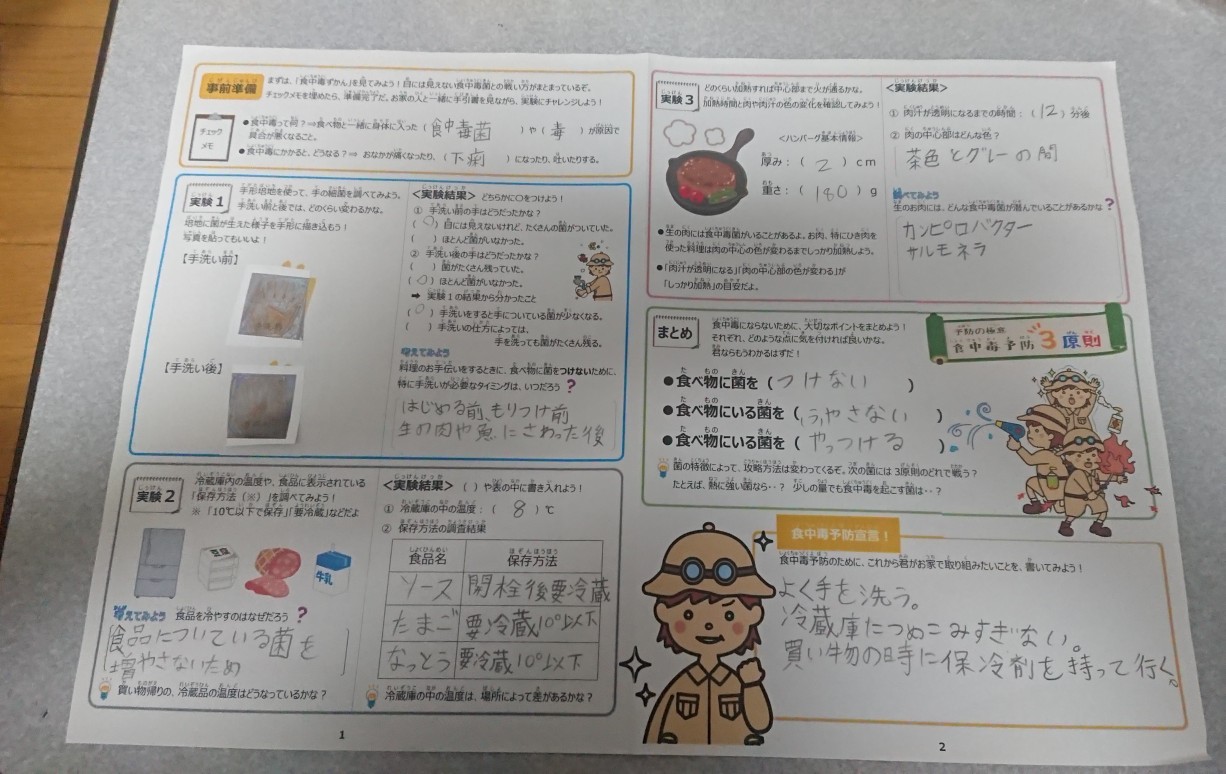 事前準備
まずは、「食中毒ずかん」を見てみよう！目には見えない食中毒菌との戦い方がまとまっているぞ。
チェックメモを埋めたら、準備完了だ。お家の人と一緒に手引書を見ながら、実験にチャレンジしよう！
チェック
メモ
●食中毒って何？⇒食べ物と一緒に身体に入った（食中毒菌）や（毒）が原因で
具合が悪くなること。
●食中毒にかかると、どうなる？⇒ おなかが痛くなったり、（下痢）になったり、吐いたりする。
実験1
手形培地を使って、手の細菌を調べてみよう。
手洗い前と後では、どのくらい変わるかな。
培地に菌が生えた様子を手形に描き込もう！
写真を貼ってもいいよ！
【手洗い前】
【手洗い後】
＜実験結果＞ どちらかに○をつけよう！
① 手洗い前の手はどうだったかな？
（○）目には見えないけれど、たくさんの菌がついていた。
（ ）ほとんど菌がいなかった。
② 手洗い後の手はどうだったかな？
（ ）菌がたくさん残っていた。
（○）ほとんど菌がいなかった。
➡ 実験1の結果から分かったこと
（○）手洗いをすると手についている菌が少なくなる。
（ ）手洗いの仕方によっては、
手を洗っても菌がたくさん残る。
考えてみよう
料理のお手伝いをするときに、食べ物に菌をつけないために、
特に手洗いが必要なタイミングは、いつだろう？
はじめる前、もりつけ前
生の肉や魚にさわった後
実験2
冷蔵庫内の温度や、食品に表示されている
「保存方法（※）」を調べてみよう！
※「10℃以下で保存」「要冷蔵」などだよ
豆腐
牛乳
考えてみよう 食品を冷やすのはなぜだろう？
食品についている菌を
増やさないため
買い物帰りの、冷蔵品の温度はどうなっているかな？
＜実験結果＞（ ）や表の中に書き入れよう！
① 冷蔵庫の中の温度：（8）℃
② 保存方法の調査結果
食品名 保存方法
ソース 開栓後要冷蔵
たまご 要冷蔵10°以下
なっとう 要冷蔵10°以下
冷蔵庫の中の温度は、場所によって差があるかな？
1
実験3
どのくらい加熱すれば中心部まで火が通るかな。
加熱時間と肉や肉汁の色の変化を確認してみよう！
＜ハンバーグ基本情報＞
厚み：（2）cm
重さ：（180）g
●生の肉には食中毒菌がいることがあるよ。お肉、特にひき肉を
使った料理は肉の中心の色が変わるまでしっかり加熱しよう。
●「肉汁が透明になる」「肉の中心部の色が変わる」が
「しっかり加熱」の目安だよ。
＜実験結果＞
① 肉汁が透明になるまでの時間：（12）分後
② 肉の中心部はどんな色？
茶色とグレーの間
調べてみよう
生のお肉には、どんな食中毒菌が潜んでいることがあるかな？
カンピロバクター
サルモネラ
まとめ
食中毒にならないために、大切なポイントをまとめよう！
それぞれ、どのような点に気を付ければ良いかな。
君ならもうわかるはずだ！
予防の極意
食中毒予防3原則
●食べ物に菌を（つけない）
●食べ物にいる菌を（ふやさない）
●食べ物にいる菌を（やっつける）
菌の特徴によって、攻略方法は変わってくるぞ。次の菌には3原則のどれで戦う？
たとえば、熱に強い菌なら‥？ 少しの量でも食中毒を起こす菌は‥？
食中毒予防宣言！
食中毒予防のために、これから君がお家で取り組みたいことを、書いてみよう！
よく手を洗う。
冷蔵庫につめこみすぎない。
買い物の時に保冷剤を持って行く。
2